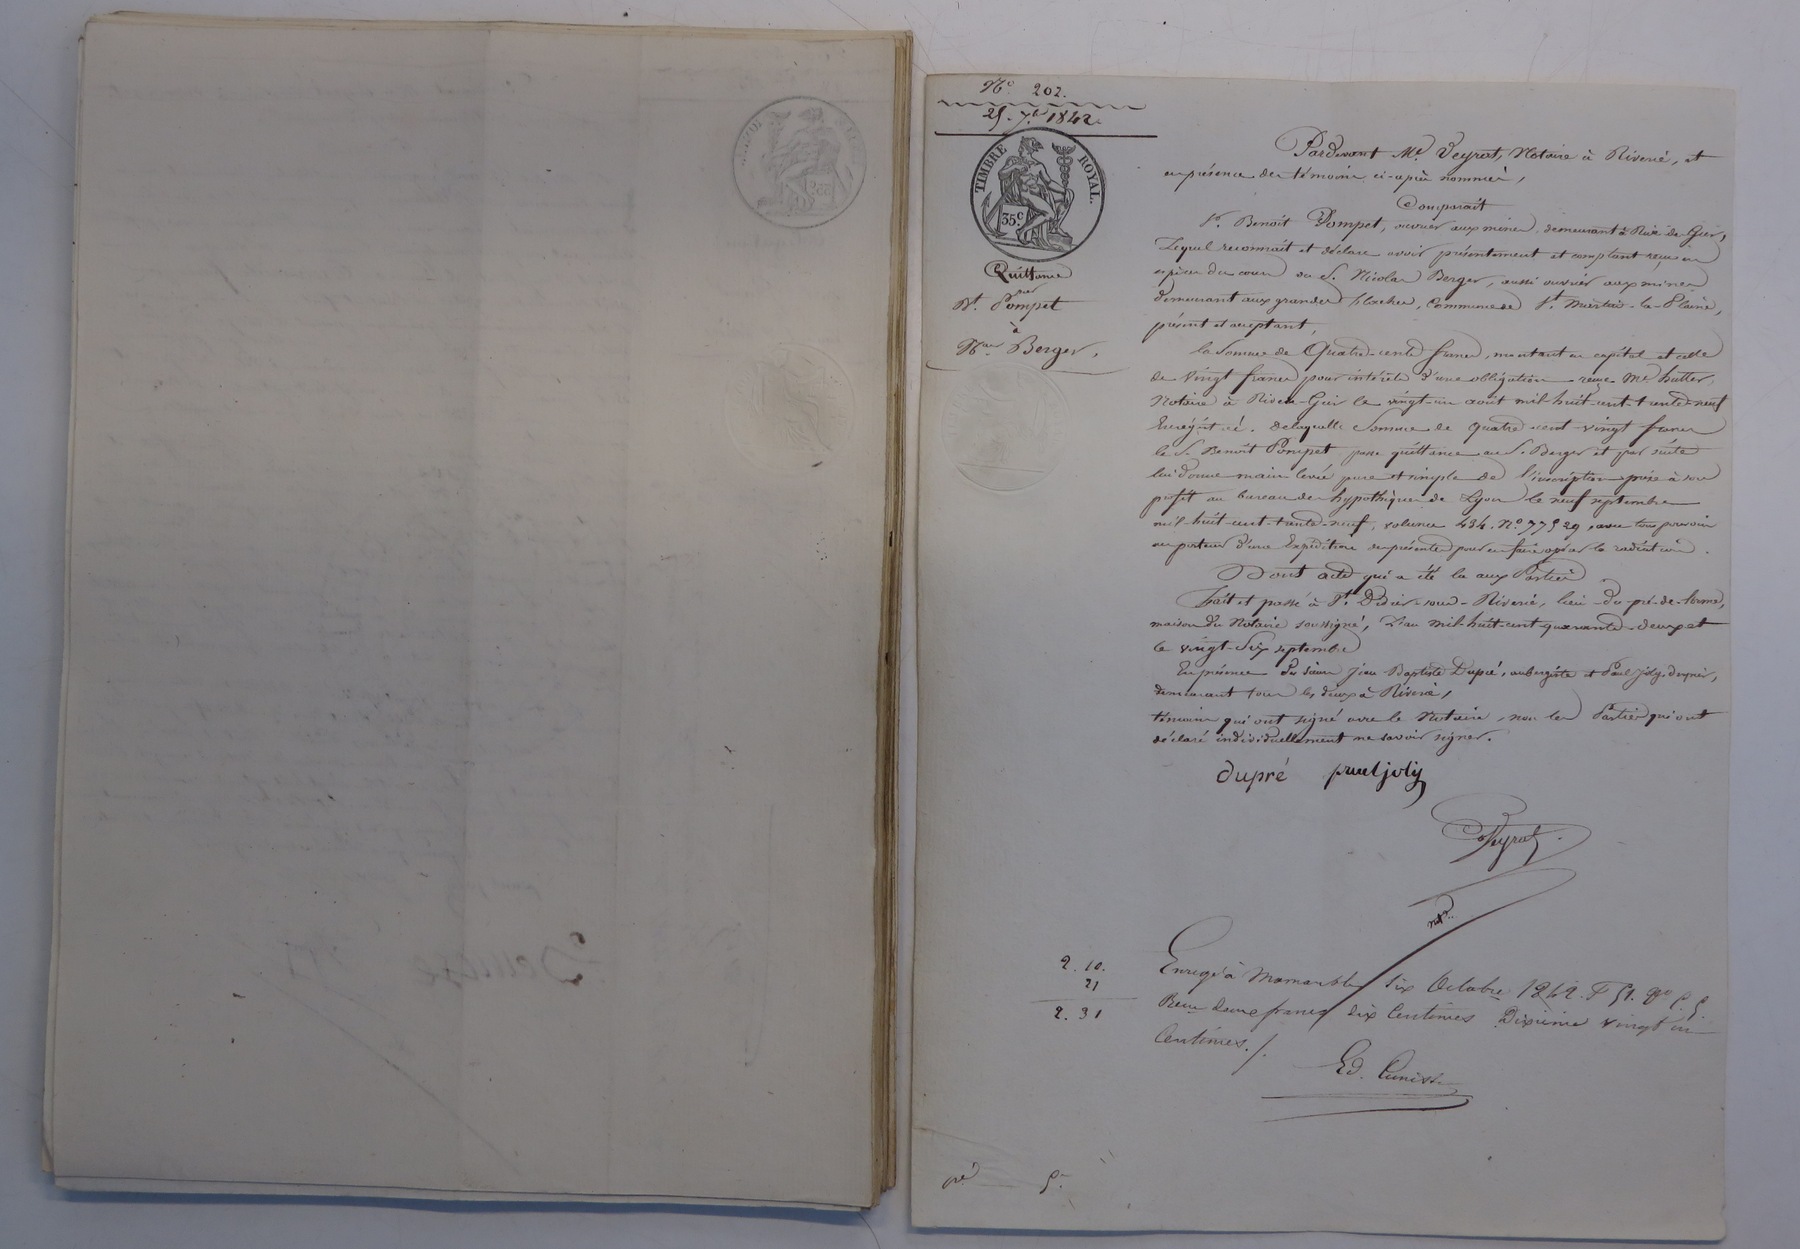 N.º 202.
25. 7.bre 1842.
TIMBRE ROYAL.
35.c
Quittance
par
B.t Pompet
à
N.as Berger.
Pardevant M.e Veyrat, Notaire à Riverié, et
en présence des témoins ci-après nommés,
Comparait
S.r Benoit Pompet, ouvrier aux mines, demeurant à Rive-de-Gier,
Lequel reconnait et déclare avoir présentement et comptant reçu en
espèces du cours du S. Nicolas Berger, aussi ouvrier aux mines
demeurant aux grandes flaches, Commune de S.t Martin-la-Plaine,
présent et acceptant,
la somme de Quatre-cents francs, montant en capital et celle
de vingt francs pour intérêts d'une obligation reçue M.e hutter,
Notaire à Rive-de-Gier le vingt-un août mil-huit-cent-trente-neuf
Enrégistré. de laquelle Somme de quatre-cent-vingt francs
le S. Benoit Pompet passe quittance au S. Berger et par suite
lui donne main levée pure et simple de l'inscription prise à son
profit au bureau des hypothèques de Lyon le neuf septembre
mil-huit-cent-trente-neuf, volume 434. N.º 77529, avec tous pouvoirs
au porteur d'une Expédition des présentes pour en faire opérer la radiation.
Dont acte qui a été lu aux Parties
Fait et passé à S.t Didier-sous-Riverié, lieu-du-pré-de-lorme,
maison du Notaire soussigné, L'an mil-huit-cent-quarante-deux et
le vingt-six septembre
En présence des sieurs Jean Baptiste Dupré, aubergiste et Paul Joly,
demeurant tous les deux à Riverié,
témoins qui ont signé avec le Notaire, non les Parties qui ont
déclaré individuellement ne savoir signer.
dupré paul joly
Veyrat
not.re
2. 10.
21
2. 31
Enregé à Mornant le six Octobre 1842. f.º 51. v.º c. 5.
Reçu deux francs dix Centimes Dixième vingt un
Centimes./.